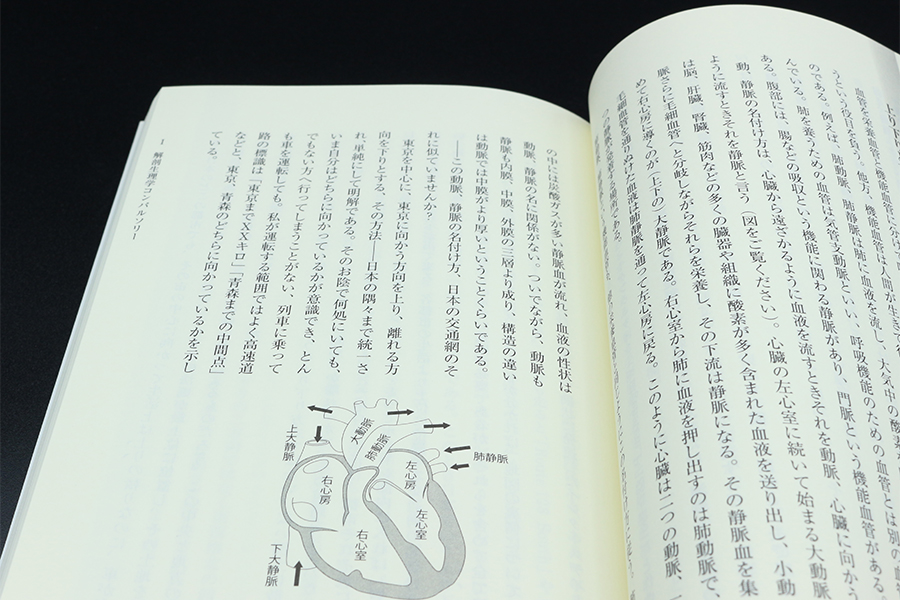 血管を栄養血管と機能血管に分けて
うという役目を負う。他方、機能血管は人間が生きて
のである。例えば、肺動脈、肺静脈は肺に血液を流し、大気中の酸素
んでいる。肺を養うための血管は気管支動脈といい、呼吸機能のための血管とは別の血
ある。腹部には、腸などの吸収という機能に関わる静脈があり、門脈という機能血管がある。
動、静脈の名付け方は、心臓から遠ざかるように血液を流すときそれを動脈、心臓に向かう
ように流すときそれを静脈と言う（図をご覧ください）。心臓の左心室に続いて始まる大動脈
は脳、肝臓、腎臓、筋肉などの多くの臓器や組織に酸素が多く含まれた血液を送り出し、小動
脈さらに毛細血管へと分岐しながらそれらを栄養し、その下流は静脈になる。その静脈血を集
めて右心房に導くのが（上下の）大静脈である。右心室から肺に血液を押し出すのは肺動脈で、
毛細血管を通りぬけた血液は肺静脈を通って左心房に戻る。このように心臓は二つの動脈、
の中には炭酸ガスが多い静脈血が流れ、血液の性状は
動脈、静脈の名に関係がない。ついでながら、動脈も
静脈も内膜、中膜、外膜の三層より成り、構造の違い
は動脈では中膜がより厚いということくらいである。
――この動脈、静脈の名付け方、日本の交通網のそ
れに似ていませんか？
東京を中心に、東京に向かう方向を上り、離れる方
向を下りとする、その方法――日本の隅々まで統一さ
れ、単純にして明解である。そのお陰で何処にいても、
いま自分はどちらに向かっているかが意識でき、とん
でもない方へ行ってしまうことがない、列車に乗って
も車を運転しても。私が運転する範囲ではよく高速道
路の標識は「東京まで××キロ」「青森までの中間点」
などと、東京、青森のどちらに向かっているかを示し
ている。
大動脈
肺動脈
肺静脈
上大静脈
左心房
右心房
左心室
右心室
下大静脈
1　解剖生理学コンパルソリー